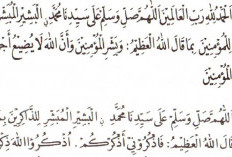 اَلْحَمْدُ لِلّٰهِ رَبِّ الْعَالَمِيْنَ اَللّٰهُمَّ صَلِّ وَسَلِّمْ عَلَى سَيِّدِنَا مُحَمَّدٍ اَلْبَشِيْرِ الْمُبَشِّرِ
لِلْمُؤْمِنِيْنَ بِمَا قَالَ اللّٰهُ الْعَظِيْمُ: وَبَشِّرِ الْمُؤْمِنِيْنَ وَأَنَّ اللّٰهَ لَا يُضِيْعُ أَجْرَ
الْمُؤْمِنِيْنَ
اَللّٰهُمَّ صَلِّ وَسَلِّمْ عَلَى سَيِّدِنَا مُحَمَّدٍ اَلْبَشِيْرِ الْمُبَشِّرِ لِلذَّاكِرِيْنَ بِمَا
قَالَ اللّٰهُ الْعَظِيْمُ: فَاذْكُرُوْنِيْ أَذْكُرْكُمْ. اُذْكُرُوا اللّٰهَ